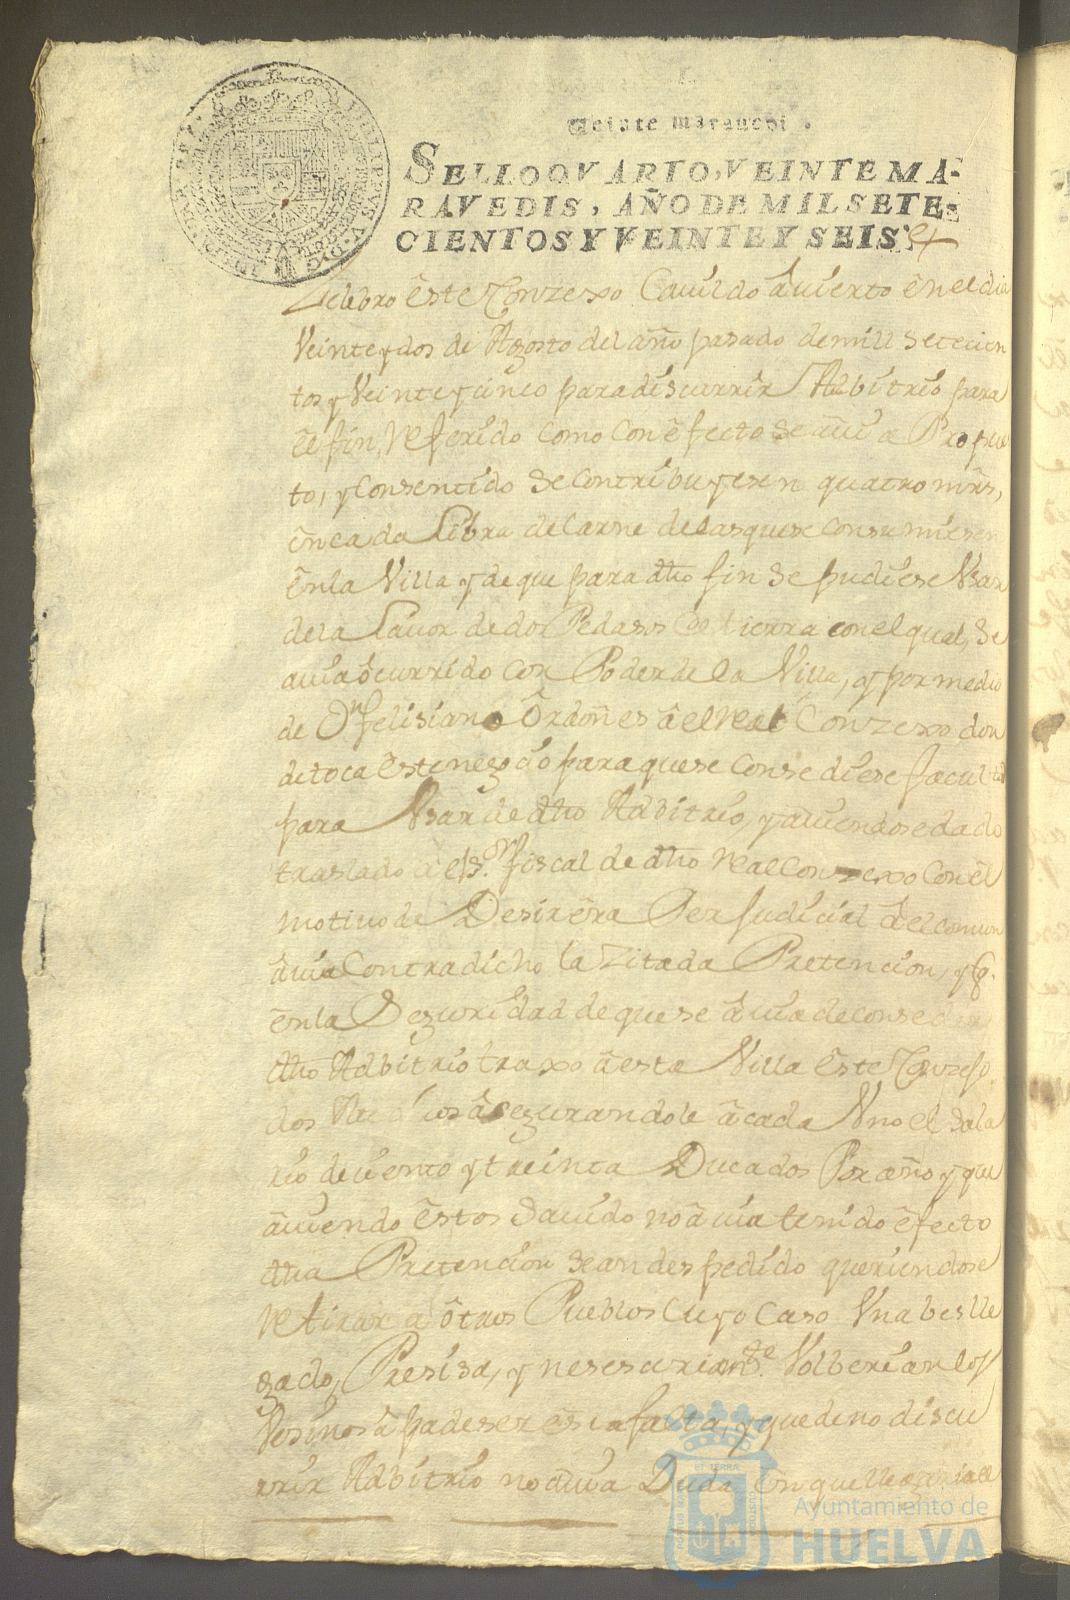 Veinte marauedi.
SELLO QVARTO, VEINTE MA-
RAVEDIS, AÑO DE MIL SETE-
CIENTOS Y VEINTE Y SEIS.
Zelebro este Conzexo Cauildo auierto en el dia
Veinte y dos de Agosto del año pasado de mill setecien
tos y Veinte y sinco para discurrir Adbitrio para
el fin Referido como con efecto se auia Propues
to, y Consentido se Contribuyesen quatro mrs,
en cada Libra de Carne de las que se Consumiesen
en la Villa y de que para dho fin se pudiese Vsar
de la Lauor de dos Pedasos de tierra con el qual, se
auia ocurrido con Poder de la Villa, y por medio
de Dn felisiano Ordoñes a el Real Conzexo don
de toca este negocio para que se Consediese facultd
para Vsar de dho Adbitrio, y auiendose dado
traslado a el sr. fiscal de dho Real Conzexo Con el
motiuo de Desir era Perjudicial a el comun
auia Contradicho la Zitada Pretencion, y q.
en la Seguridad de que se auia de conseder
dho Adbitrio traxo a esta Villa este Conzejo
dos asegurandole a cada Vno el Sala
rio de ciento y treinta Ducados Por año y que
auiendo estos Sauido no auia tenido efecto
dha Pretencion se an despedido queriendose
Retirar a otros Pueblos Cuyo Caso Vna bes lle
gado, Presisa, y nesesariamte. Volberian los
Vesinos a padeser esta falta, y que de no discu
rrir Adbitrio no auia Duda en que llegaria el
Ayuntamiento de
HUELVA